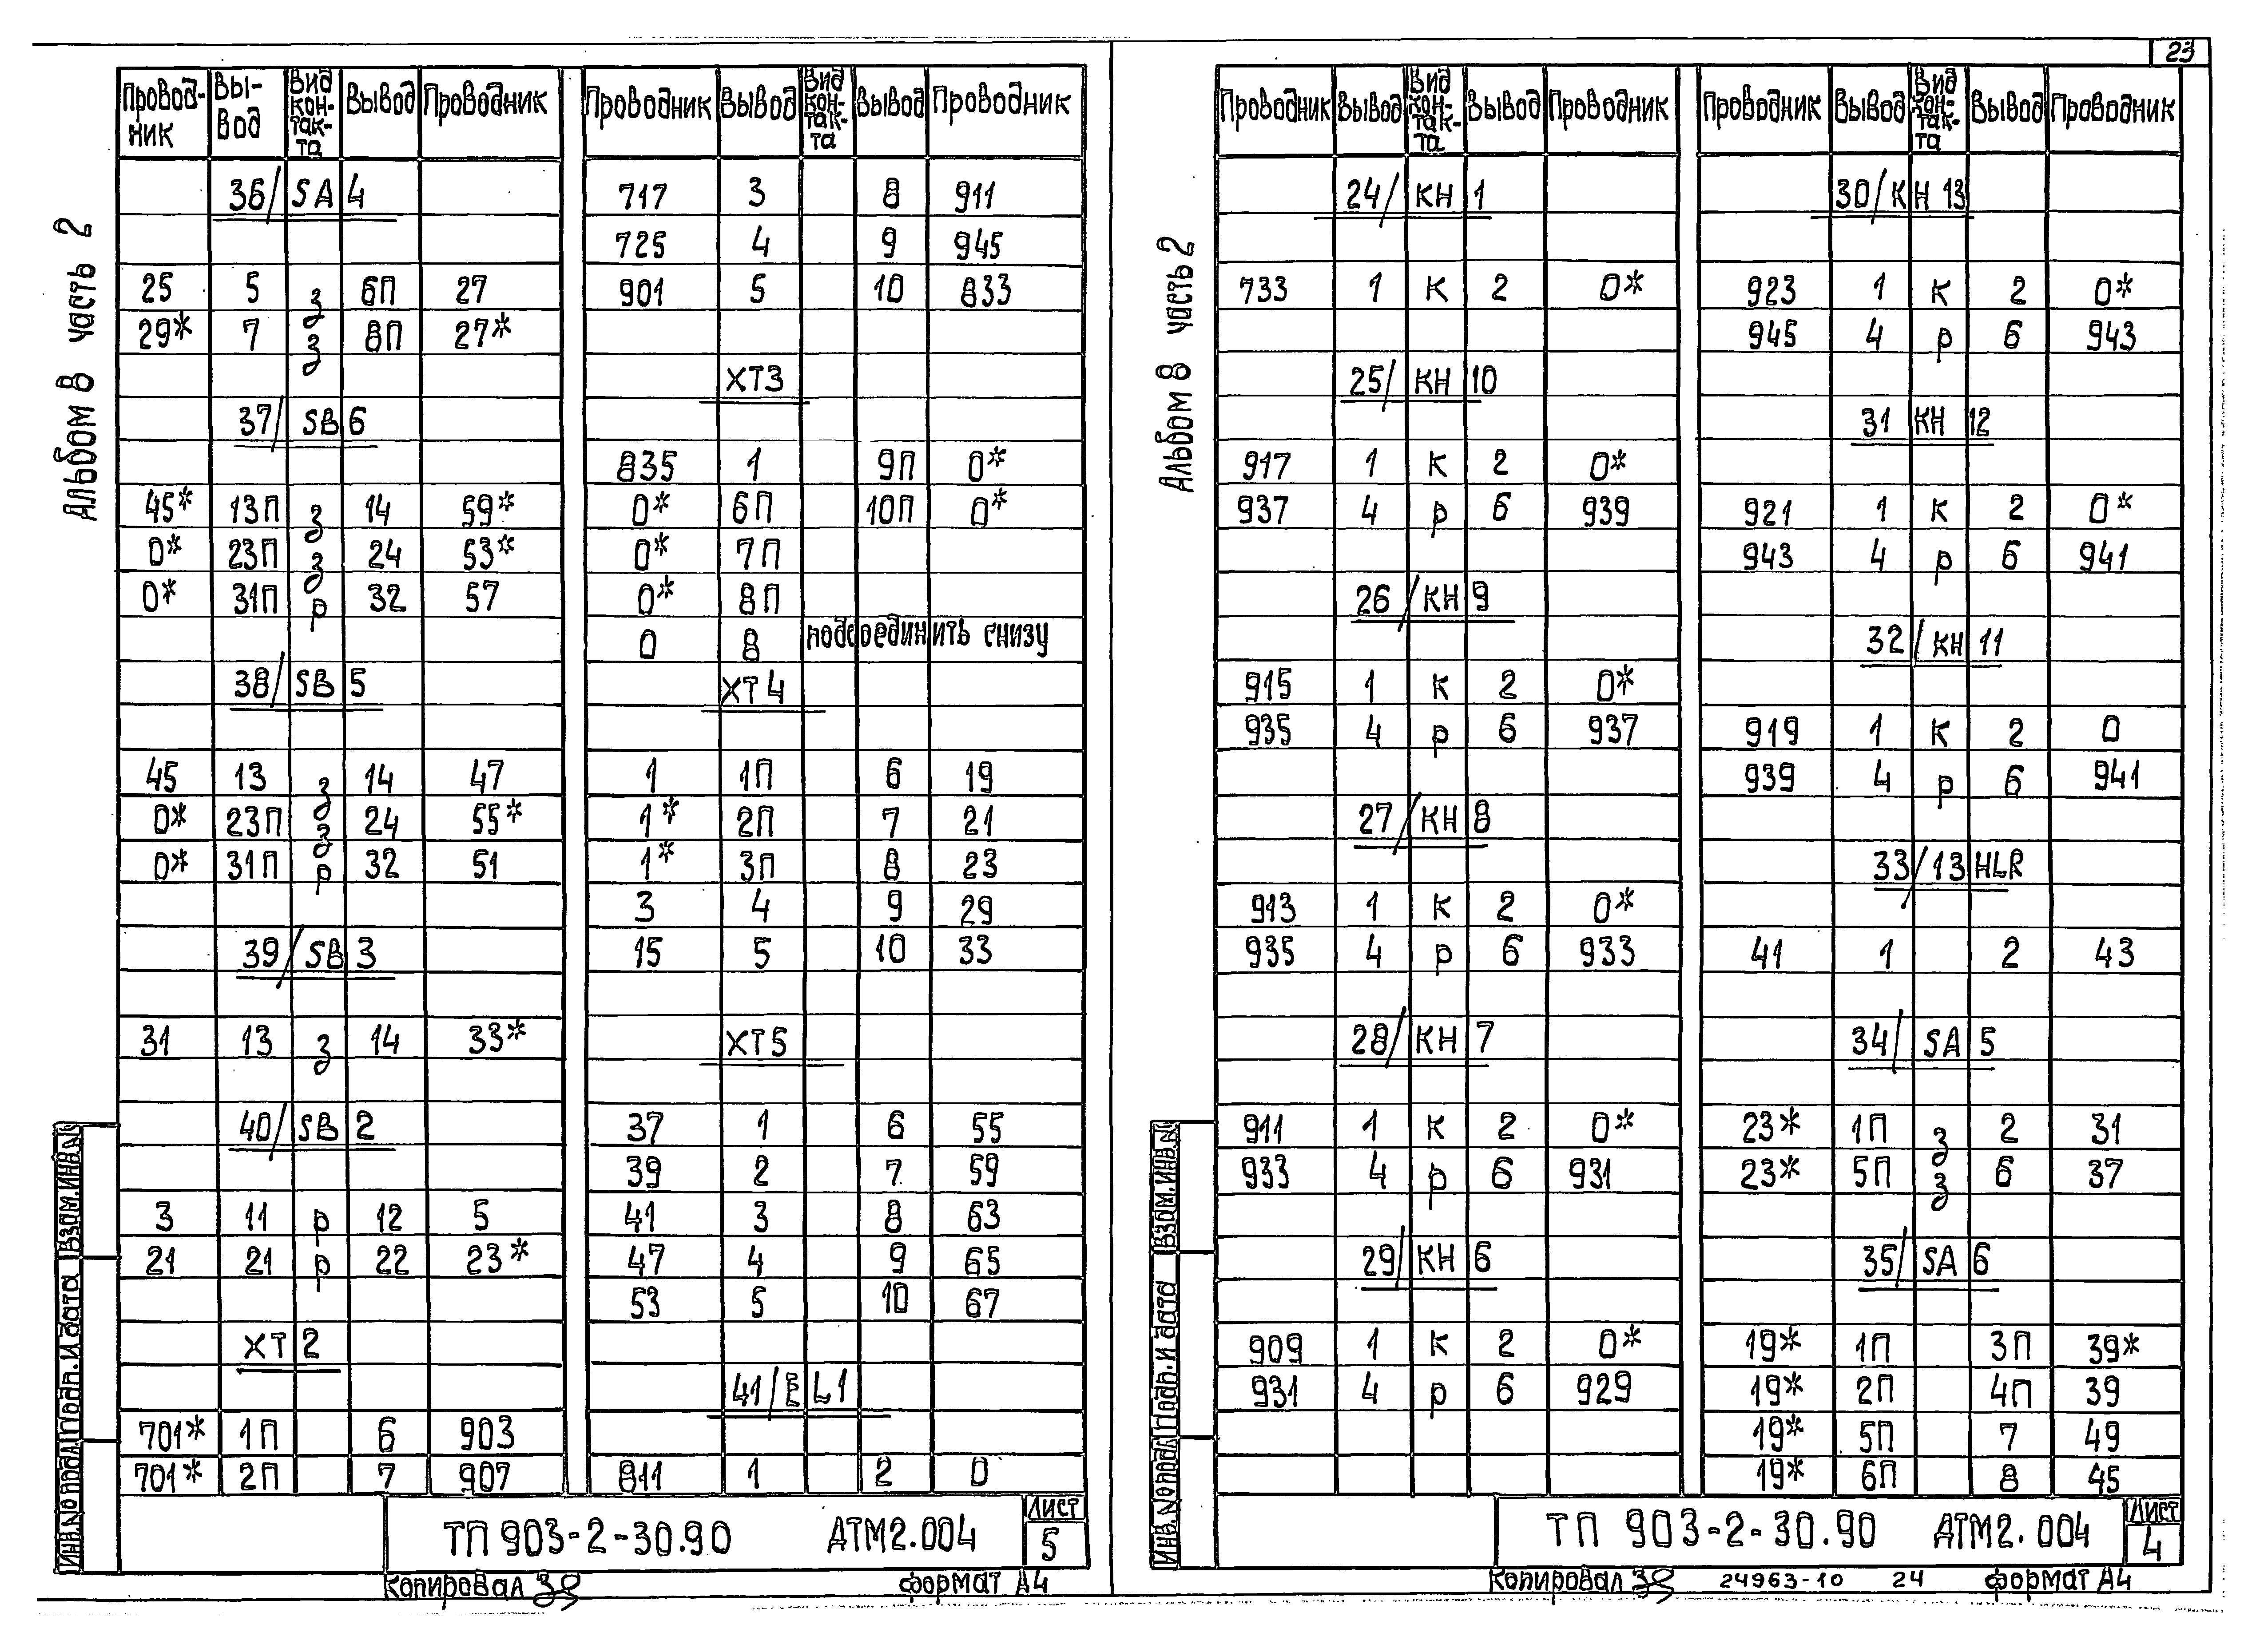 23
Альбом 8 часть 2
Провод- ник Вы- вод Вид кон- так- та Вывод Проводник
36/ SA 4
25 5 з 6П 27
29* 7 з 8П 27*
37/ SB 6
45* 13П з 14 59*
0* 23П з 24 53*
0* 31П р 32 57
38/ SB 5
45 13 з 14 47
0* 23П з 24 55*
0* 31П р 32 51
39/ SB 3
31 13 з 14 33*
40/ SB 2
3 11 р 12 5
21 21 р 22 23*
ХТ 2
701* 1П 6 903
701* 2П 7 907
Проводник Вывод Вид кон- так- та Вывод Проводник
717 3 8 911
725 4 9 945
901 5 10 833
ХТ3
835 1 9П 0*
0* 6П 10П 0*
0* 7П
0* 8П
0 8 подсоединить снизу
ХТ 4
1 1П 6 19
1* 2П 7 21
1* 3П 8 23
3 4 9 29
15 5 10 33
ХТ 5
37 1 6 55
39 2 7 59
41 3 8 63
47 4 9 65
53 5 10 67
41/ E L1
811 1 2 0
Взам.инв.№
Подп. и дата
Инв.№ подл
ТП 903-2-30.90 АТМ2.004
Лист
5
Копировал
формат А4
Альбом 8 часть 2
Проводник Вывод Вид кон- так- та Вывод Проводник
24/ КН 1
733 1 К 2 0*
25/ КН 10
917 1 К 2 0*
937 4 р 6 939
26 / КН 9
915 1 К 2 0*
935 4 р 6 937
27 / КН 8
913 1 К 2 0*
935 4 р 6 933
28/ КН 7
911 1 К 2 0*
933 4 р 6 931
29/ КН 6
909 1 К 2 0*
931 4 р 6 929
Проводник Вывод Вид кон- так- та Вывод Проводник
30/ КН 13
923 1 К 2 0*
945 4 р 6 943
31 КН 12
921 1 К 2 0*
943 4 р 6 941
32 / КН 11
919 1 К 2 0
939 4 р 6 941
33/13 HLR
41 1 2 43
34/ SA 5
23* 1П з 2 31
23* 5П з 6 37
35/ SA 6
19* 1П 3П 39*
19* 2П 4П 39
19* 5П 7 49
19* 6П 8 45
Взам.инв.№
Подп. и дата
Инв.№ подл
ТП 903-2-30.90 АТМ2.004
Лист
4
Копировал
24963-10 24 формат А4